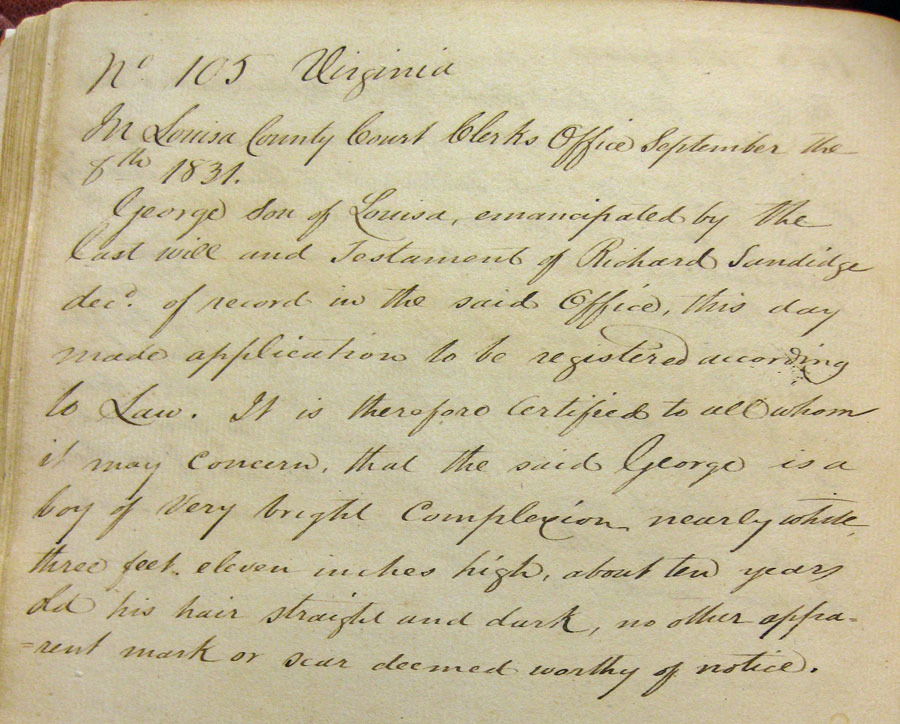 No 105 Virginia
In Louisa County Court Clerks Office September the
8th 1831.
George son of Louisa, emancipated by the
last will and Testament of Richard Sandidge
decd. of record in the said Office, this day
made application to be registered according
to Law. It is therefore Certified to all whom
it may concern, that the said George is a
boy of very bright Complexion nearly white,
three feet eleven inches high, about ten years
old his hair straight and dark, no other appa-
=rent mark or scar deemed worthy of notice.